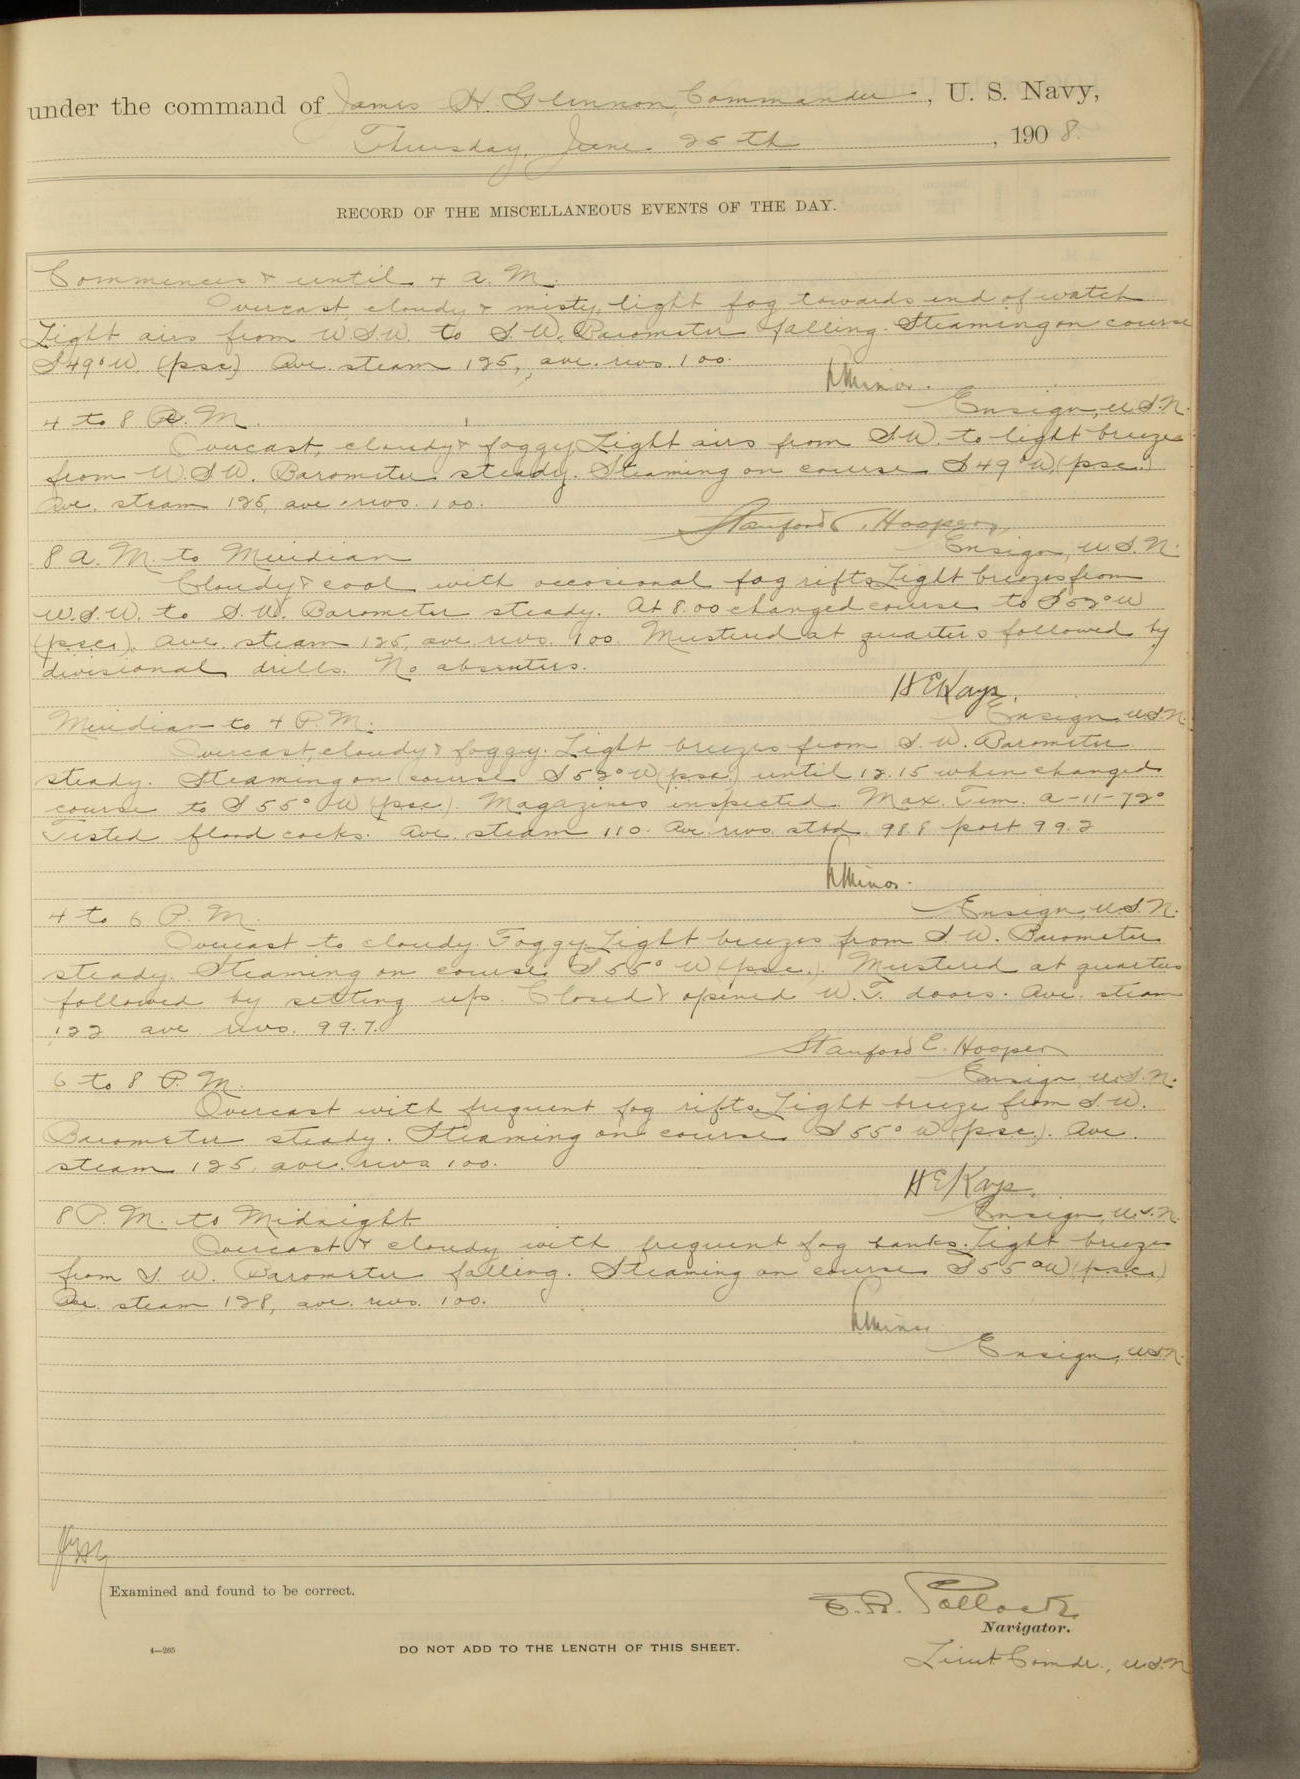 under the command of James H. Glennon, Commander, U. S. Navy,
Thursday, June 25th, 1908.
RECORD OF THE MISCELLANEOUS EVENTS OF THE DAY.
Commences & until 4 a. M.
Overcast, cloudy & misty, light fog towards end of watch
Light airs from W.S.W. to S.W. Barometer falling. Steaming on course
S49°W (psc) Ave. steam 125, ave. revs. 100.
R Minor.
Ensign, U.S.N.
4 to 8 A. M.
Overcast, cloudy & foggy Light airs from S.W. to light breezes
from W.S.W. Barometer steady. Steaming on course S49°W (psc.)
Ave. steam 125, ave. revs. 100.
Stanford C. Hooper,
Ensign, U.S.N.
8 A. M. to Meridian
Cloudy & cool with occasional fog rifts. Light breezes from
W.S.W. to S.W. Barometer steady. At 8.00 changed course to S52°W
(psc.). Ave steam 125, ave revs. 100. Mustered at quarters followed by
divisional drills. No absentees.
H E Kays.
Ensign, U.S.N.
Meridian to 4 P.M.
Overcast, cloudy & foggy. Light breezes from S.W. Barometer
steady. Steaming on course S52°W (psc.) until 12.15 when changed
course to S55°W (psc.). Magazines inspected. Max. Tem. A-11-72°
Tested flood cocks. Ave. steam 110. Ave revs. stbd. 98.8 port 99.2
R Minor.
Ensign, U.S.N.
4 to 6 P. M.
Overcast to cloudy. Foggy. Light breezes from S.W. Barometer
steady. Steaming on course S55° W (psc.). Mustered at quarters
followed by setting ups. Closed & opened W.T. doors. Ave. steam
122 ave revs. 99.7.
Stanford C. Hooper
Ensign, U.S.N.
6 to 8 P. M.
Overcast with frequent fog rifts. Light breeze from S.W.
Barometer steady. Steaming on course S55° W (psc.). Ave.
steam 125, ave. revs 100.
H E Kays.
Ensign, U.S.N.
8 P. M. to Midnight
Overcast & cloudy with frequent fog banks. Light breezes
from S.W. Barometer falling. Steaming on course S55°W (p.s.c.)
Ave. steam 128, ave. revs. 100.
R Minor
Ensign, U.S.N.
Examined and found to be correct.
E. R. Pollock
Navigator.
4—265
DO NOT ADD TO THE LENGTH OF THIS SHEET.
Lieut. Comdr., U.S.N.